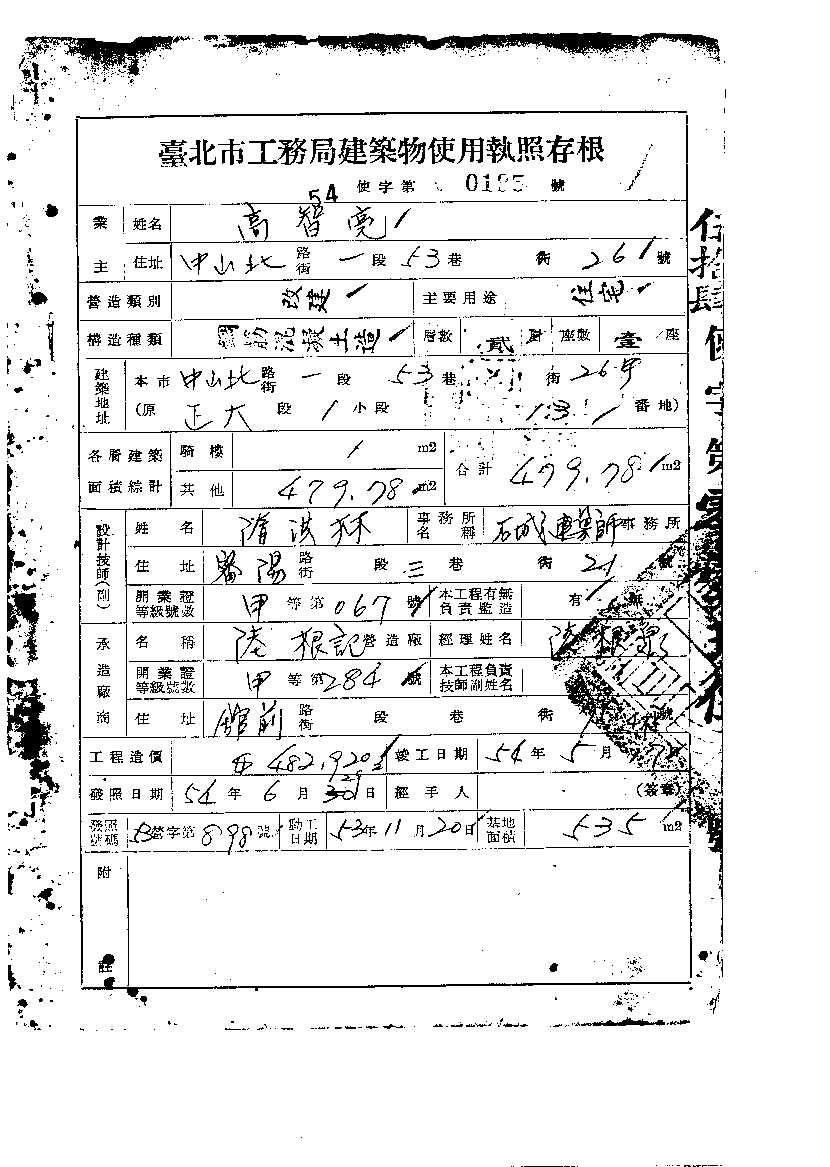 臺北市工務局建築物使用執照存根
54 使字第 0195 號
業主 姓名 高智亮
住址 中山北 路街 一 段 53 巷 街 26 號
營造類別 改建 主要用途 住宅
構造種類 鋼筋混凝土造 層數 貳 層 座數 壹 座
建築地址 本市 中山北 路街 一 段 53 巷 街 26 號
(原 正大 段 1 小段 番地)
各層建築面積綜計 騎樓 m2 合計 479.78 m2
其他 479.78 m2
設計技師(副) 姓名 隋洪林 事務所名稱 石城建築師 事務所
住址 瀋陽 路街 段 三 巷 街 21 號
開業證等級號數 甲 等第 067 號 本工程有無負責監造 有 無
承造廠商 名稱 陸根記 營造廠 經理姓名 陸根泉
開業證等級號數 甲 等第 284 號 本工程負責技師副姓名
住址 館前 路街 段 巷 街 號
工程造價 482,920 竣工日期 54 年 5 月
發照日期 54 年 6 月 29 日 經手人 (簽章)
發照號碼 53 營字第 898 號 動工日期 53 年 11 月 20 日 基地面積 535 m2
附註
伍拾肆使字第
號